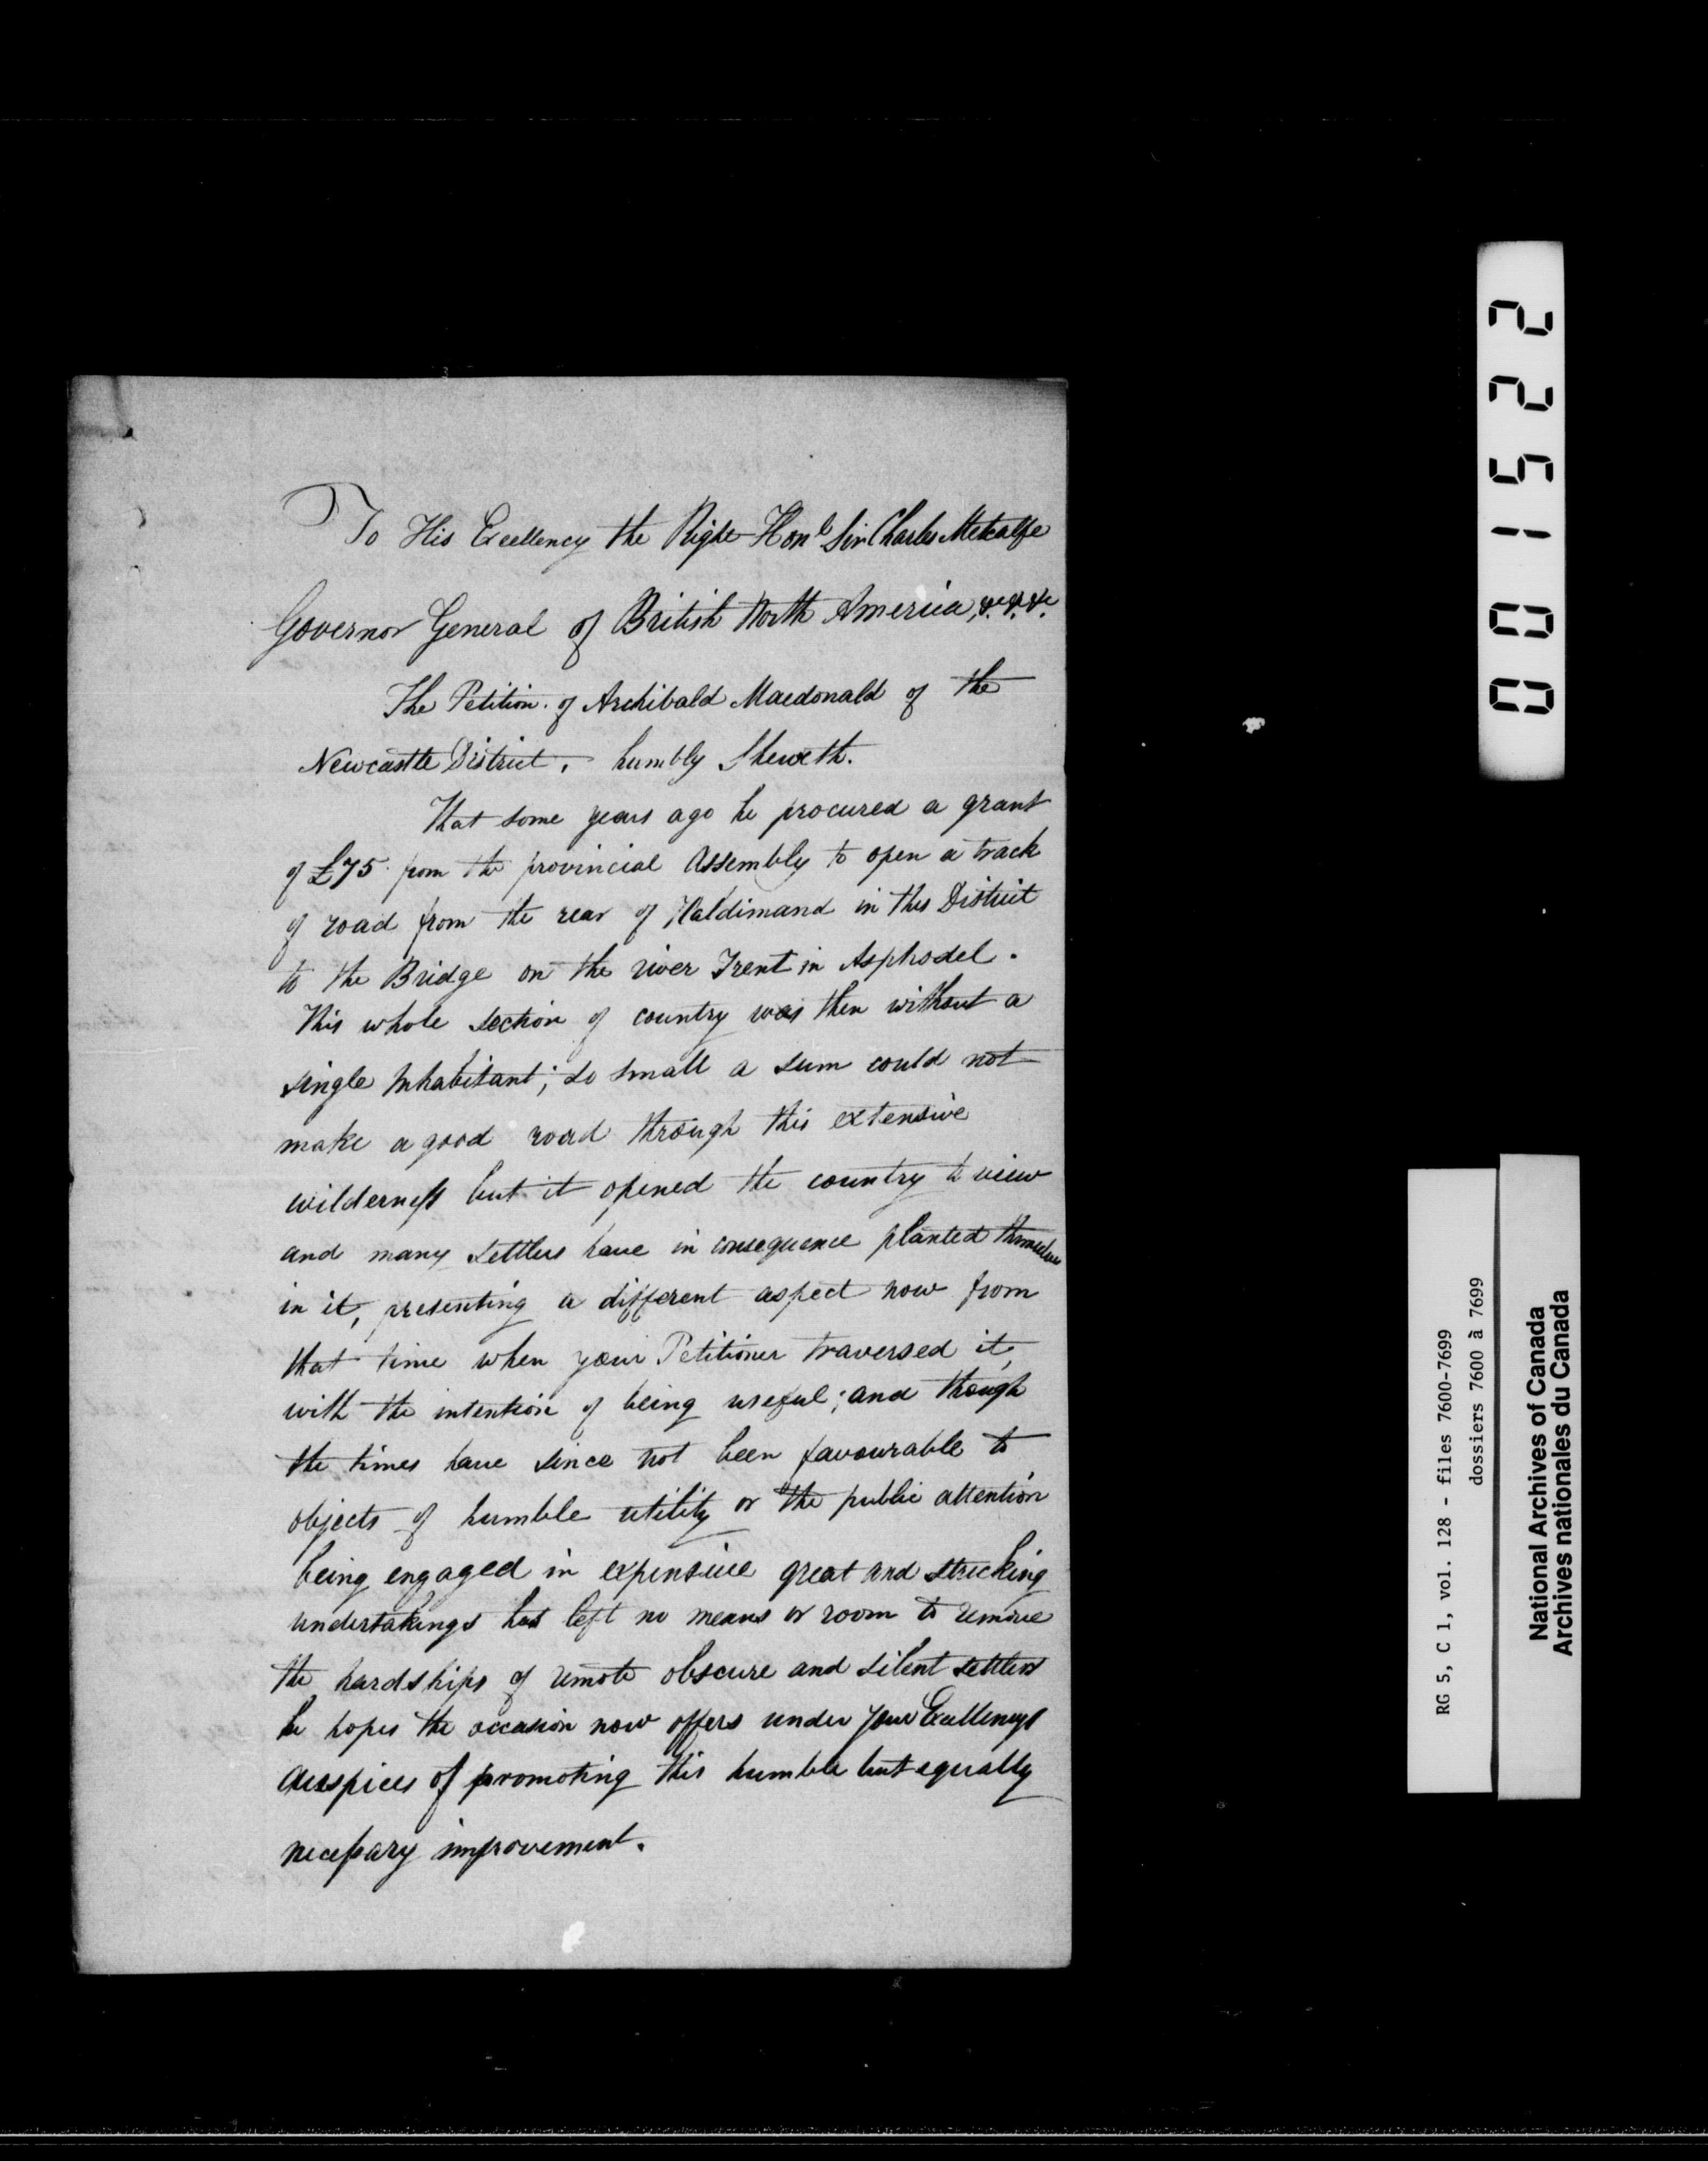 To His Excellency the Right Honl Sir Charles Metcalfe
Governor General of British North America, &c. &c. &c.
The Petition of Archibald Macdonald of the
Newcastle District, humbly Sheweth.
That some years ago he procured a grant
of £75 from the provincial Assembly to open a track
of road from the rear of Haldimand in this District
to the Bridge on the river Trent in Asphodel.
This whole section of country was then without a
single Inhabitant; so small a sum could not
make a good road through this extensive
wilderness but it opened the country to view
and many settlers have in consequence planted themselves
in it, presenting a different aspect now from
that time when your Petitioner traversed it,
with the intention of being useful; and though
the times have since not been favourable to
objects of humble utility or the public attention
being engaged in expensive great and stricking
undertakings has left no means or room to remove
the hardships of remote obscure and silent settlers
he hopes the occasion now offers under your Excellencys
Auspices of promoting this humble but equally
necessary improvement.
001522
RG 5, C 1, vol. 128 - files 7600-7699
dossiers 7600 à 7699
National Archives of Canada
Archives nationales du Canada